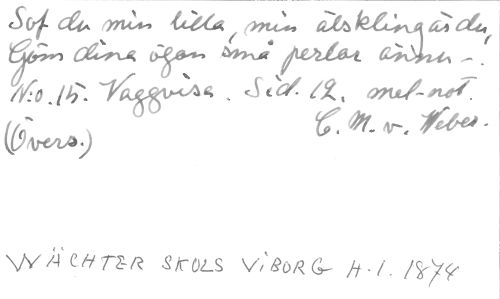 Sof du min lilla, min älskling är du,
Göm dina ögon små perlar ännu -.
N:o. 15. Vaggvisa. Sid. 12. mel-not.
C. M. v. Weber.
(Övers.)
WÄCHTER SKOLS VIBORG H.I. 1874